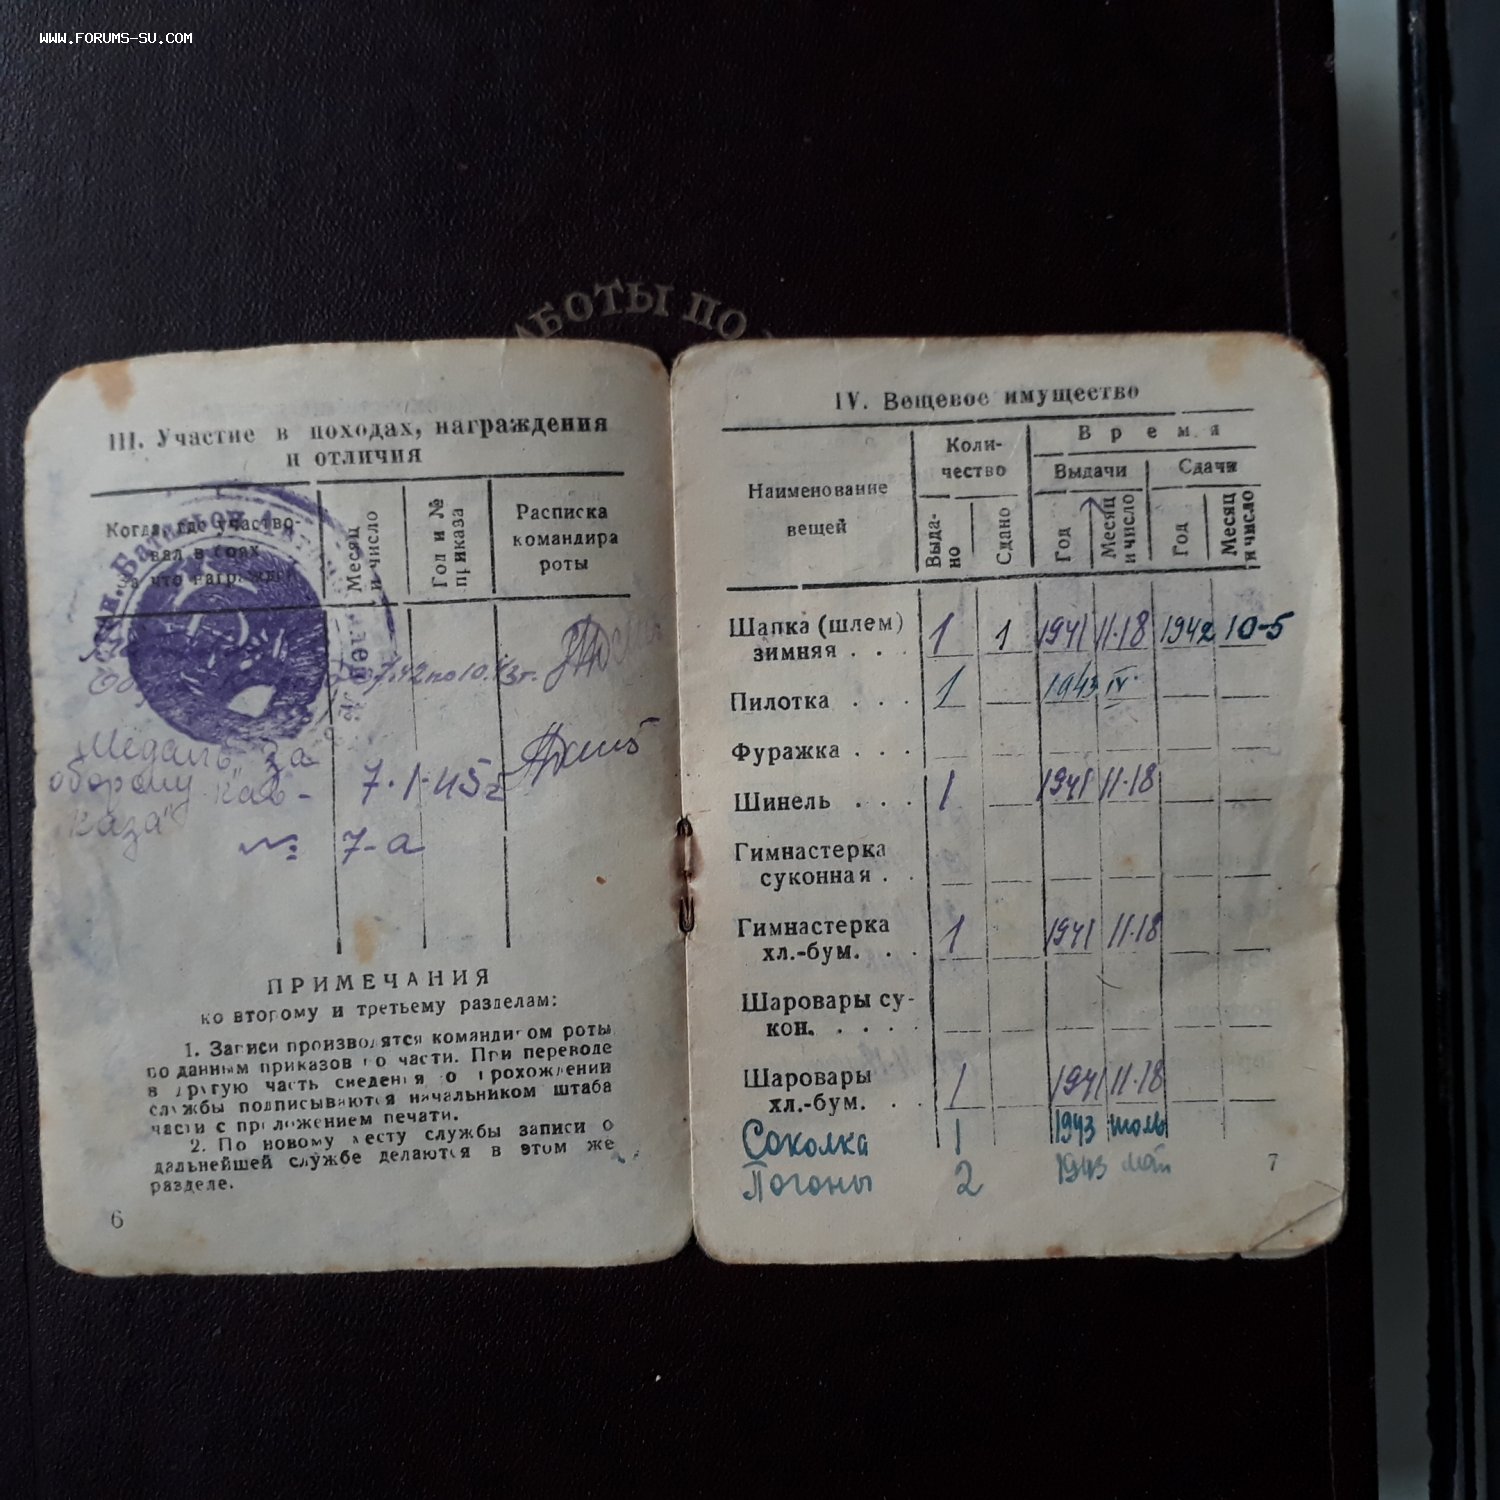 WWW.FORUMS-SU.COM
АБОТЫ ПО
III. Участие в походах, награждения
и отличия
Когда, где участво-
вал в боях
за что награжден
Месяц
и число
Год и №
приказа
Расписка
командира
роты
7.42 по 10.43г.
Медаль "За
оборону Кав-
каза"
7·1·45г
№ 7-а
ПРИМЕЧАНИЯ
ко второму и третьему разделам:
1. Записи производятся командиром роты
по данным приказов по части. При переводе
в другую часть сведения о прохождении
службы подписываются начальником штаба
части с приложением печати.
2. По новому месту службы записи о
дальнейшей службе делаются в этом же
разделе.
6
IV. Вещевое имущество
Наименование
вещей
Коли-
чество
Время
Выдачи
Сдачи
Выда-
но
Сдано
Год
Месяц
и число
Год
Месяц
и число
Шапка (шлем)
зимняя . . . 1 1 1941 11·18 1942 10-5
Пилотка . . . 1 1943 IV·
Фуражка . . .
Шинель . . . 1 1941 11·18
Гимнастерка
суконная . .
Гимнастерка
хл.-бум. . . 1 1941 11·18
Шаровары су-
кон. . . . .
Шаровары
хл.-бум. . . 1 1941 11·18
Соколка 1 1943 июль
Погоны 2 1943 май
7